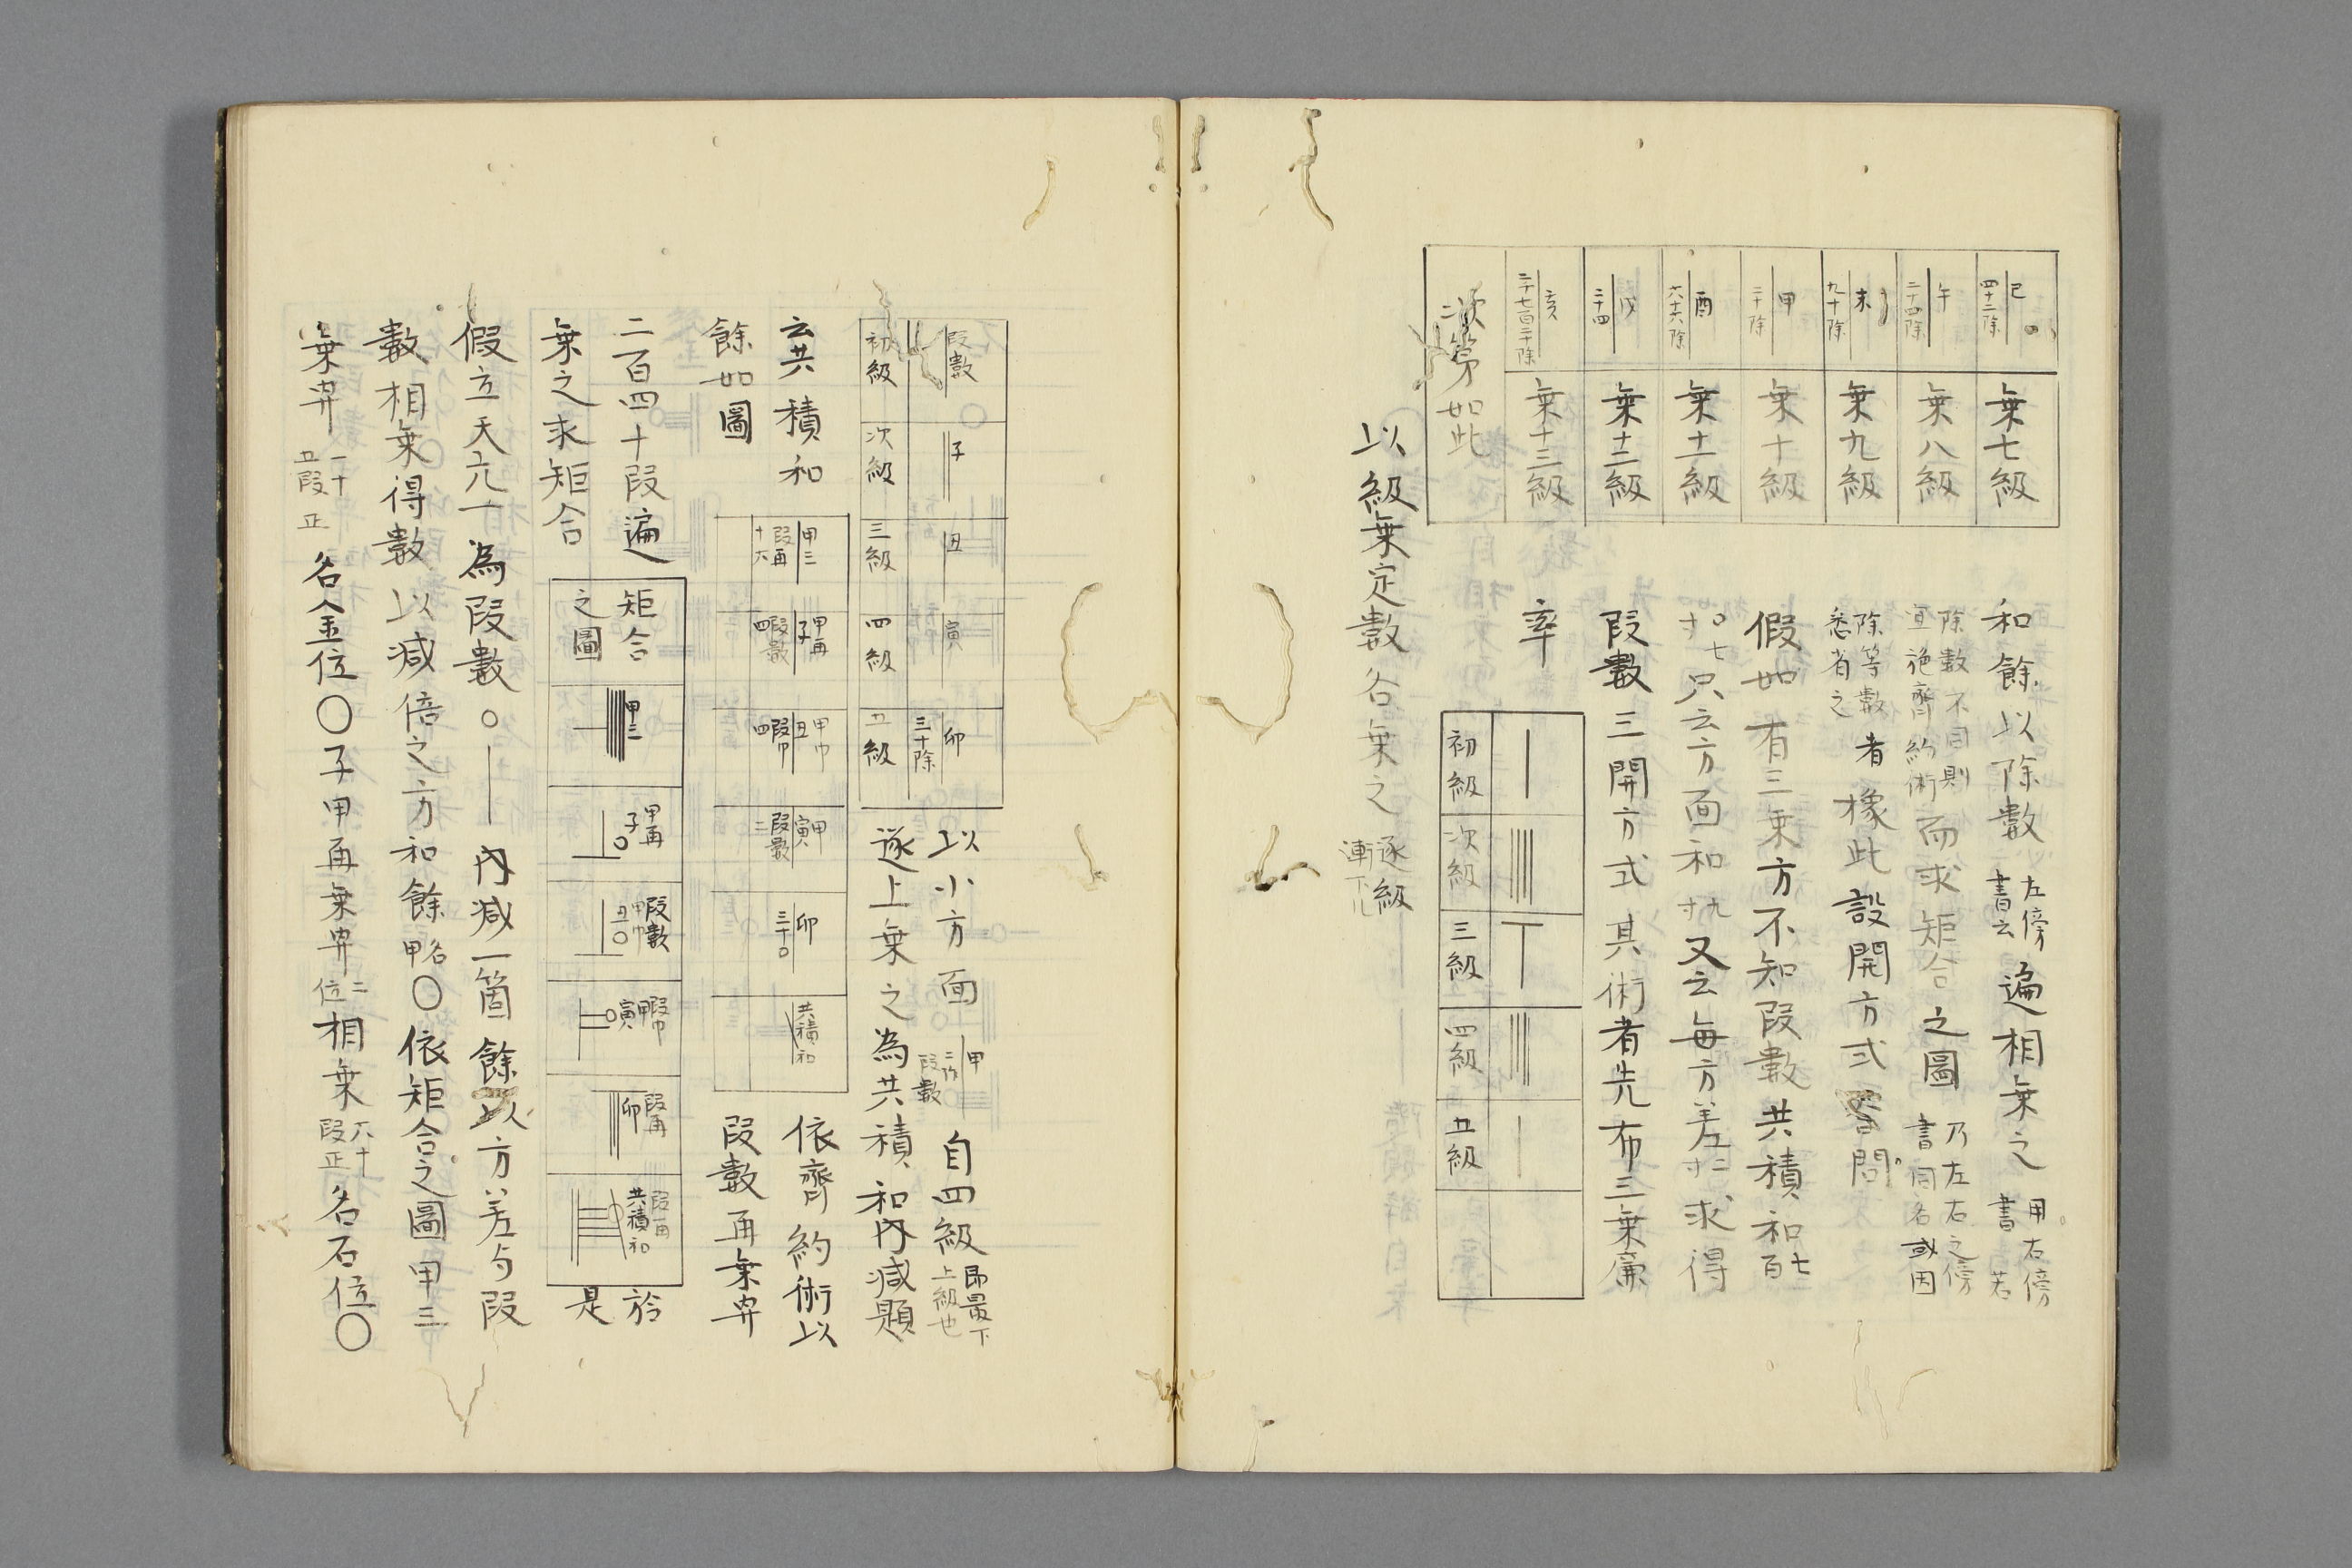 巳 四十二除 乗七級
午 二十四除 乗八級
未 九十除 乗九級
甲 二十除 乗十級
酉 六十六除 乗十一級
戌 二十四 乗十二級
亥 二千七百三十除 乗十三級
次第如此
和餘以除數 左傍書云 遍相乗之 用右傍書若
除數不同則宜施齊約術 而求矩合之圖 乃左右之傍書同名或因
除等數悉省之 者 橡此設開方式 答問
假如有三乗方不知段數共積和 七百
〇七寸 只云方面和 九寸 又云毎方差 二寸 求得
段數三開方式其術者先布三乗廉
率
初級 次級 三級 四級 五級
以級乗定數各乗之 逐級漸下儿
段數 子 丑 寅 卯 三十除
初級 次級 三級 四級 五級
以小方面 甲 二除段數 自四級 昂最下上級也
逐上乗之為共積和内減題
云共積和
餘如圖
甲三 段再十六
甲再子 段數四
甲巾丑 段巾四
甲寅 段數二
卯 三十〇
共積和
依齊約術以
段數再乗冪
二百四十段遍
乗之求矩合
矩合之圖
甲三
甲再子
段數甲巾丑
段巾甲寅
段再卯
段再共積和
於是
假立天元一為段數〇｜内減一箇餘以方差与段
數相乗得數以減倍之方和餘 名甲略 〇依矩合之圖甲三
乗冪 一十五段正 名金位〇子甲再乗冪 二位 相乗 六十段正 名石位〇